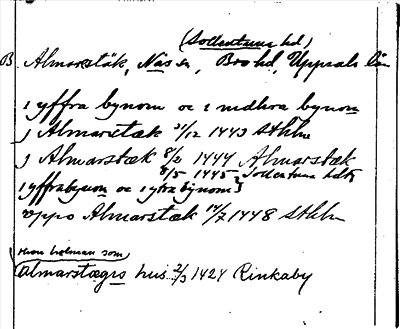 (Sollentuna hd)
B. Almarstäk, Näs sn, Bro hd, Uppsala län
i yffra bynom oc i nidhra bynom
j Almarstæk 21/12 1443 Sthlm
j Almarstæk 8/2 1444 Almarstæk
8/5 1445 Sollentuna hds
i yffrabynom oc i ytra bynom
uppo Almarstæk 14/7 1448 Sthlm
hwon holman som
Almarstægis hus 2/3 1424 Rinkaby